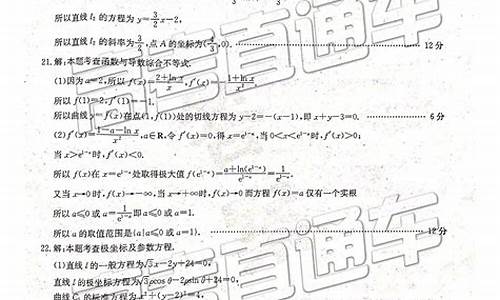 所以直线 l₂ 的方程为 y=3/2 x-2,
所以直线 l₂ 的斜率为 3/2, 点 A 的坐标为(4/3,0). 12 分
21.解:本题考查函数与导数综合不等式.
(1)因为 a=2,所以 f(x)=(2+ln x)/x, f′(x)=-(1+ln x)/x²
所以 f(1)=2, f′(1)=-1.
所以曲线 y=f(x)在点(1,f(1))处的切线方程为 y-2=-(x-1),即 x+y-3=0. 6 分
(2)f′(x)=(1-a-ln x)/x², a∈R,令 f′(x)=0,得 x=e^(1-a),当 0<x<e^(1-a)时,f′(x)>0;
当 x>e^(1-a)时,f′(x)<0.
所以 f(x)在 x=e^(1-a)处取得极大值 f(e^(1-a))=(a+ln(e^(1-a)))/e^(1-a)=1/e^(1-a).
又当 x→0 时,f(x)→-∞,当 x→+∞时,f(x)→0 而方程 f(x)=a 仅有一个实根
所以 a≤0 或 a=1/e^(1-a),即 a≤0 或 a=1.
所以 a 的取值范围是{a|a≤0 或 a=1}. 12 分
22.解:本题考查极坐标及参数方程.
(1)直线 l 的一般方程为√3x-2y+24=0,
直线 l 的极坐标方程为√3ρcos θ-2ρsin θ+24=0,
的标准方程为 x²+(y-2)²=4,
高考直通车
高考直通车